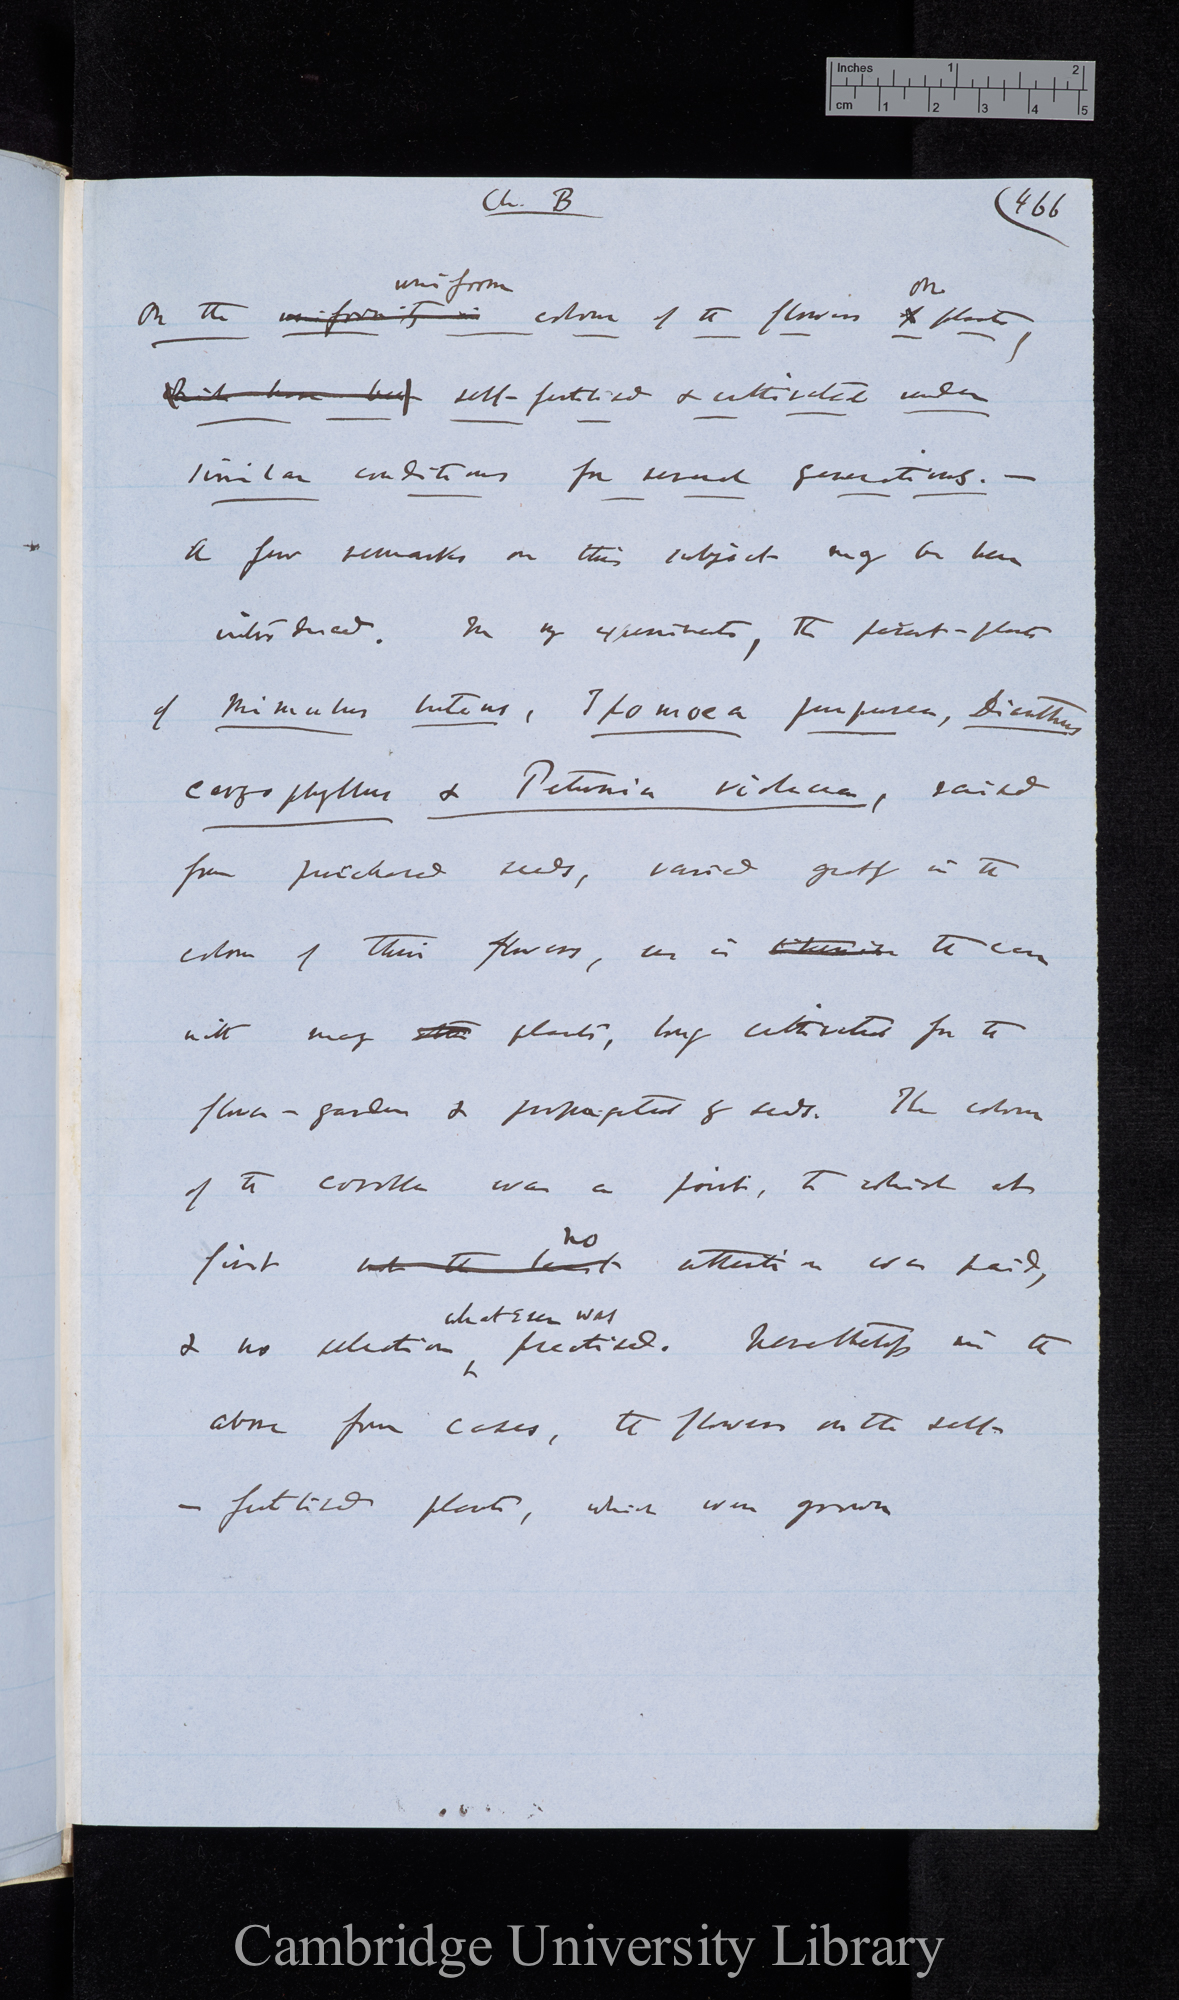 Inches 1 2
cm 1 2 3 4 5
Ch. B
(466
uniform on
On the uniformity in colour of the flowers of plants,
which have been self-fertilised & cultivated under
similar conditions for several generations. —
A few remarks on this subject may be here
introduced. In my experiments, the parent-plants
of Mimulus luteus, Ipomoea purpurea, Dianthus
caryophyllus & Petunia violacea, raised
from purchased seeds, varied greatly in the
colour of their flowers, as is likewise the case
with many plants, long cultivated for the
flower-garden & propagated by seeds. The colour
of the corolla was a point, to which at
no
first not the least attention was paid,
whatever was
& no selection practised. Nevertheless in the
above four cases, the flowers on the self-
- fertilised plants, which were grown
Cambridge University Library